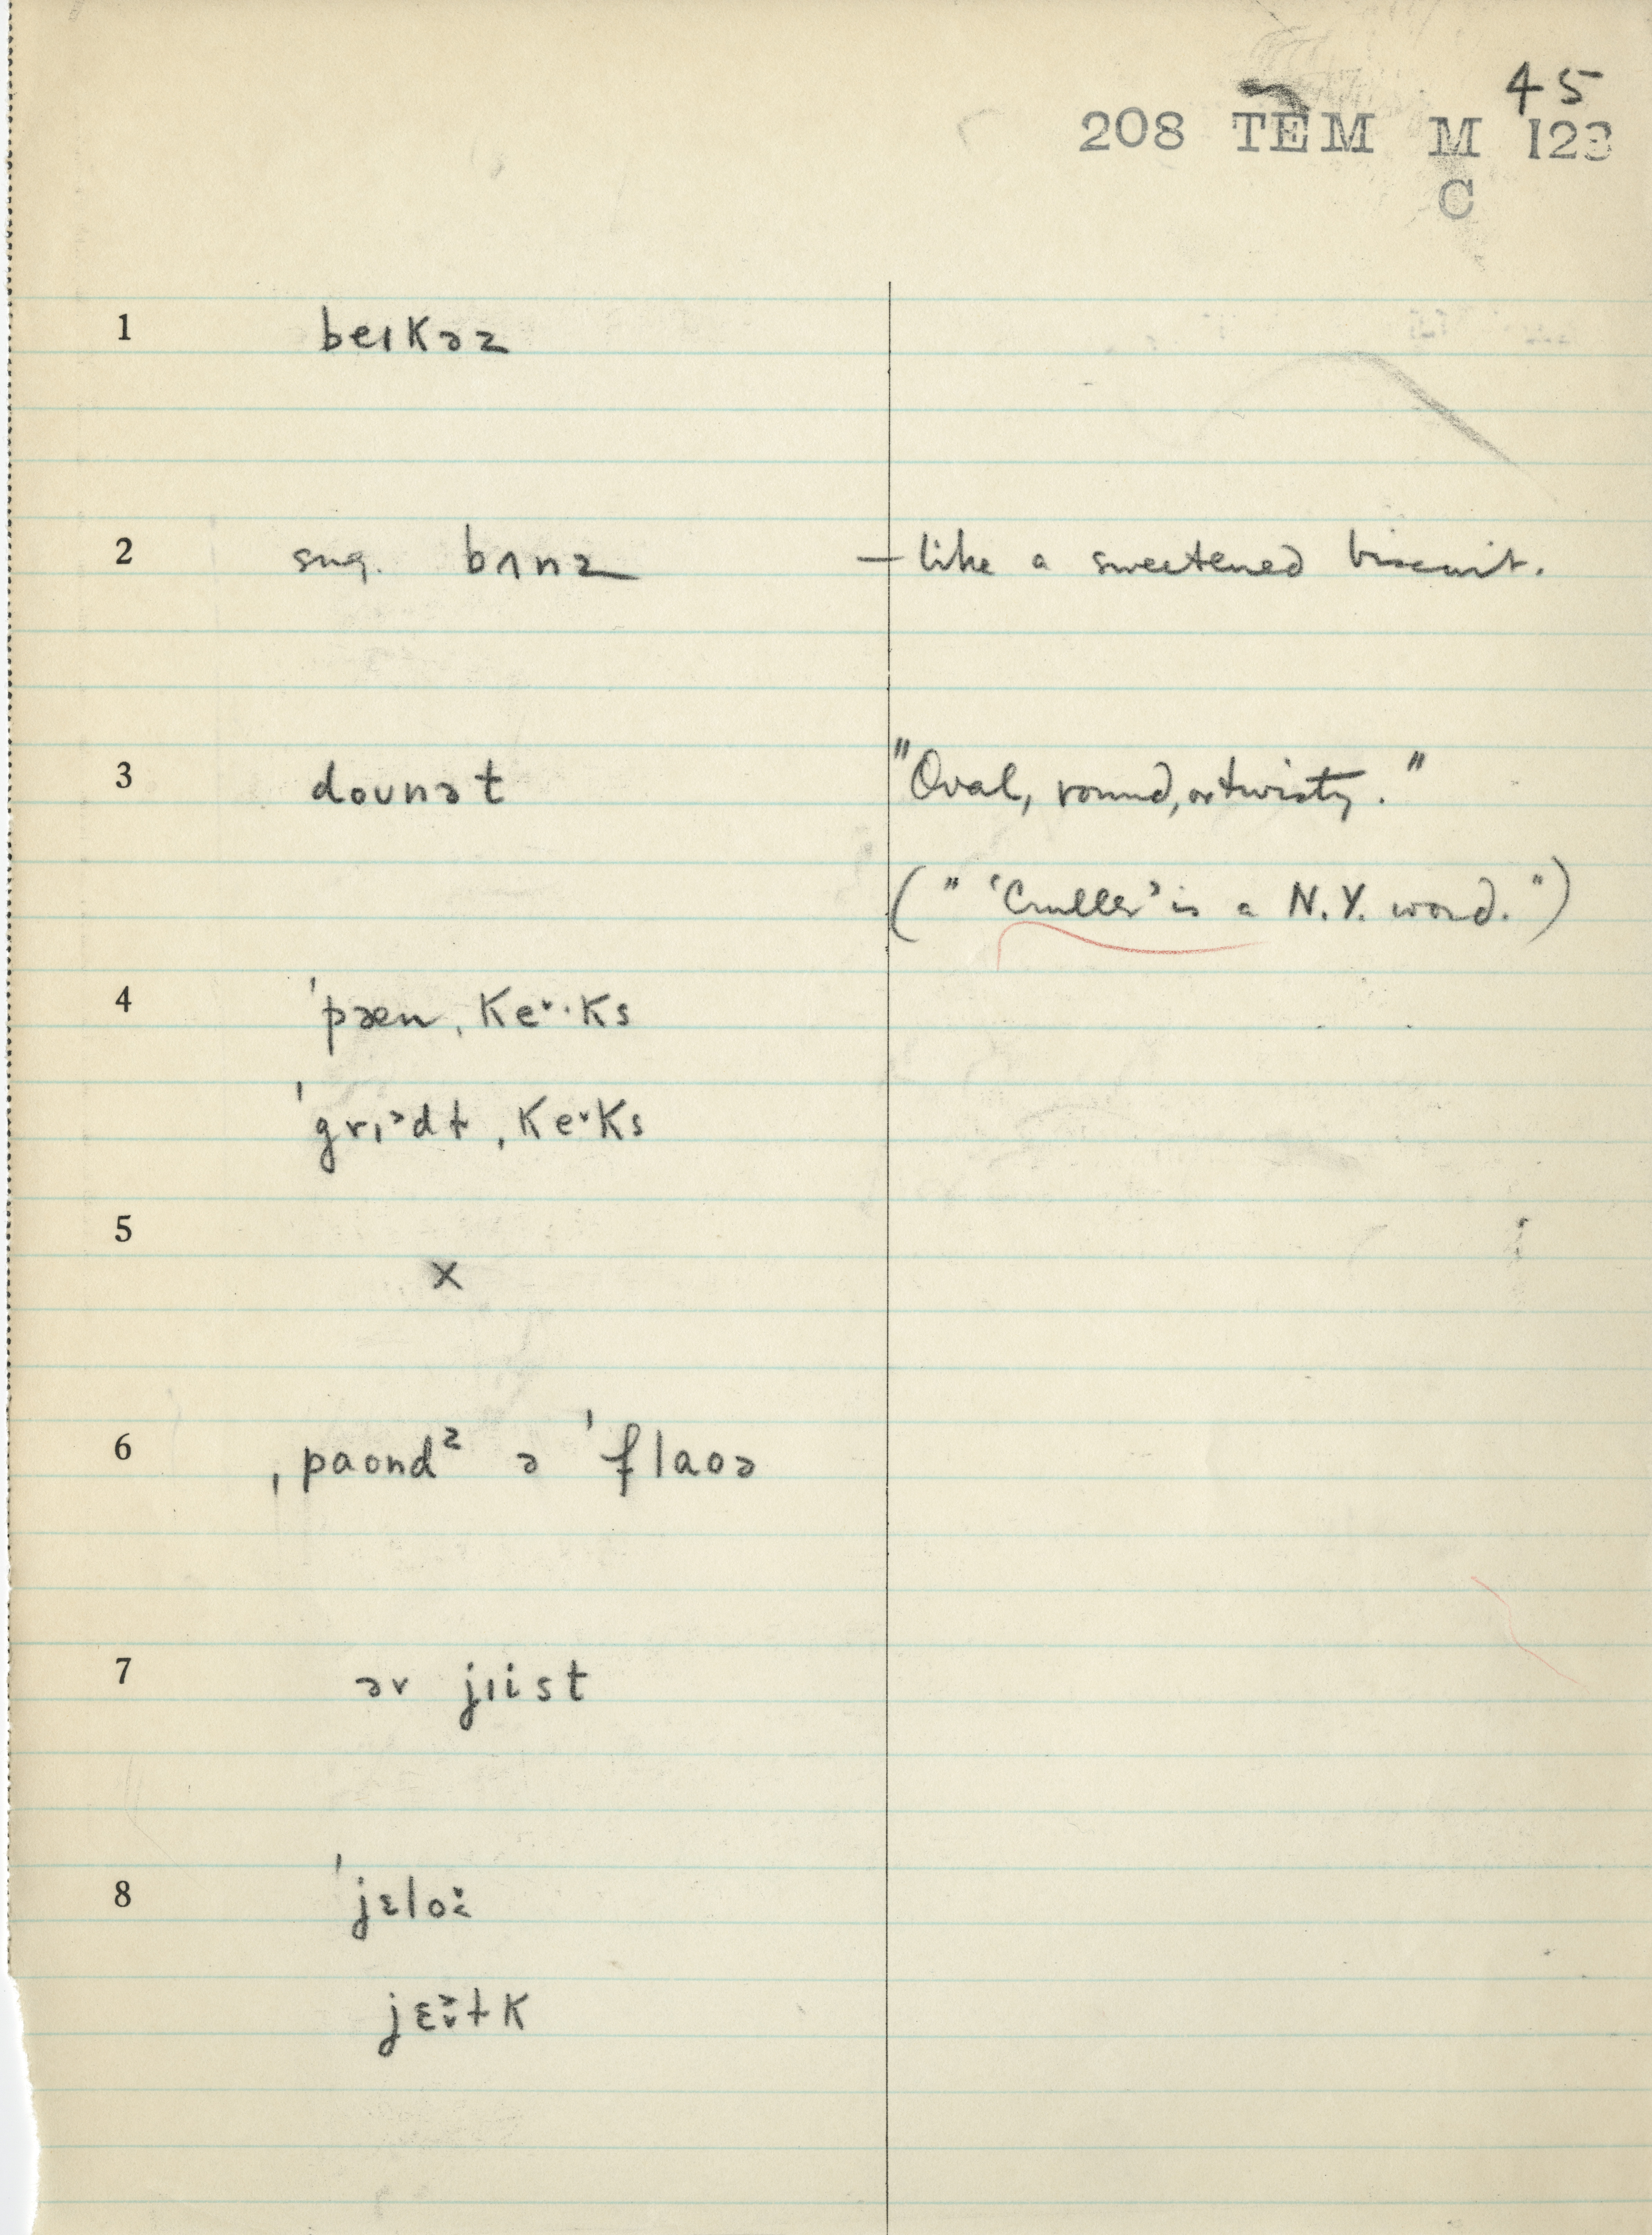 45
208 TEM M 123
C
1 beɪkəz
2 sug. bʌnz – like a sweetened biscuit.
3 doʊnət "Oval, round, or twisty."
(" 'Cruller' is a N.Y. word.")
4 ˈpæn ˌkeˑks
ˈgrɪ˃dɫ ˌkeˑks
5 x
6 ˌpaond ᶻ ə ˈflaoə
7 əv jɪist
8 ˈjɛlo